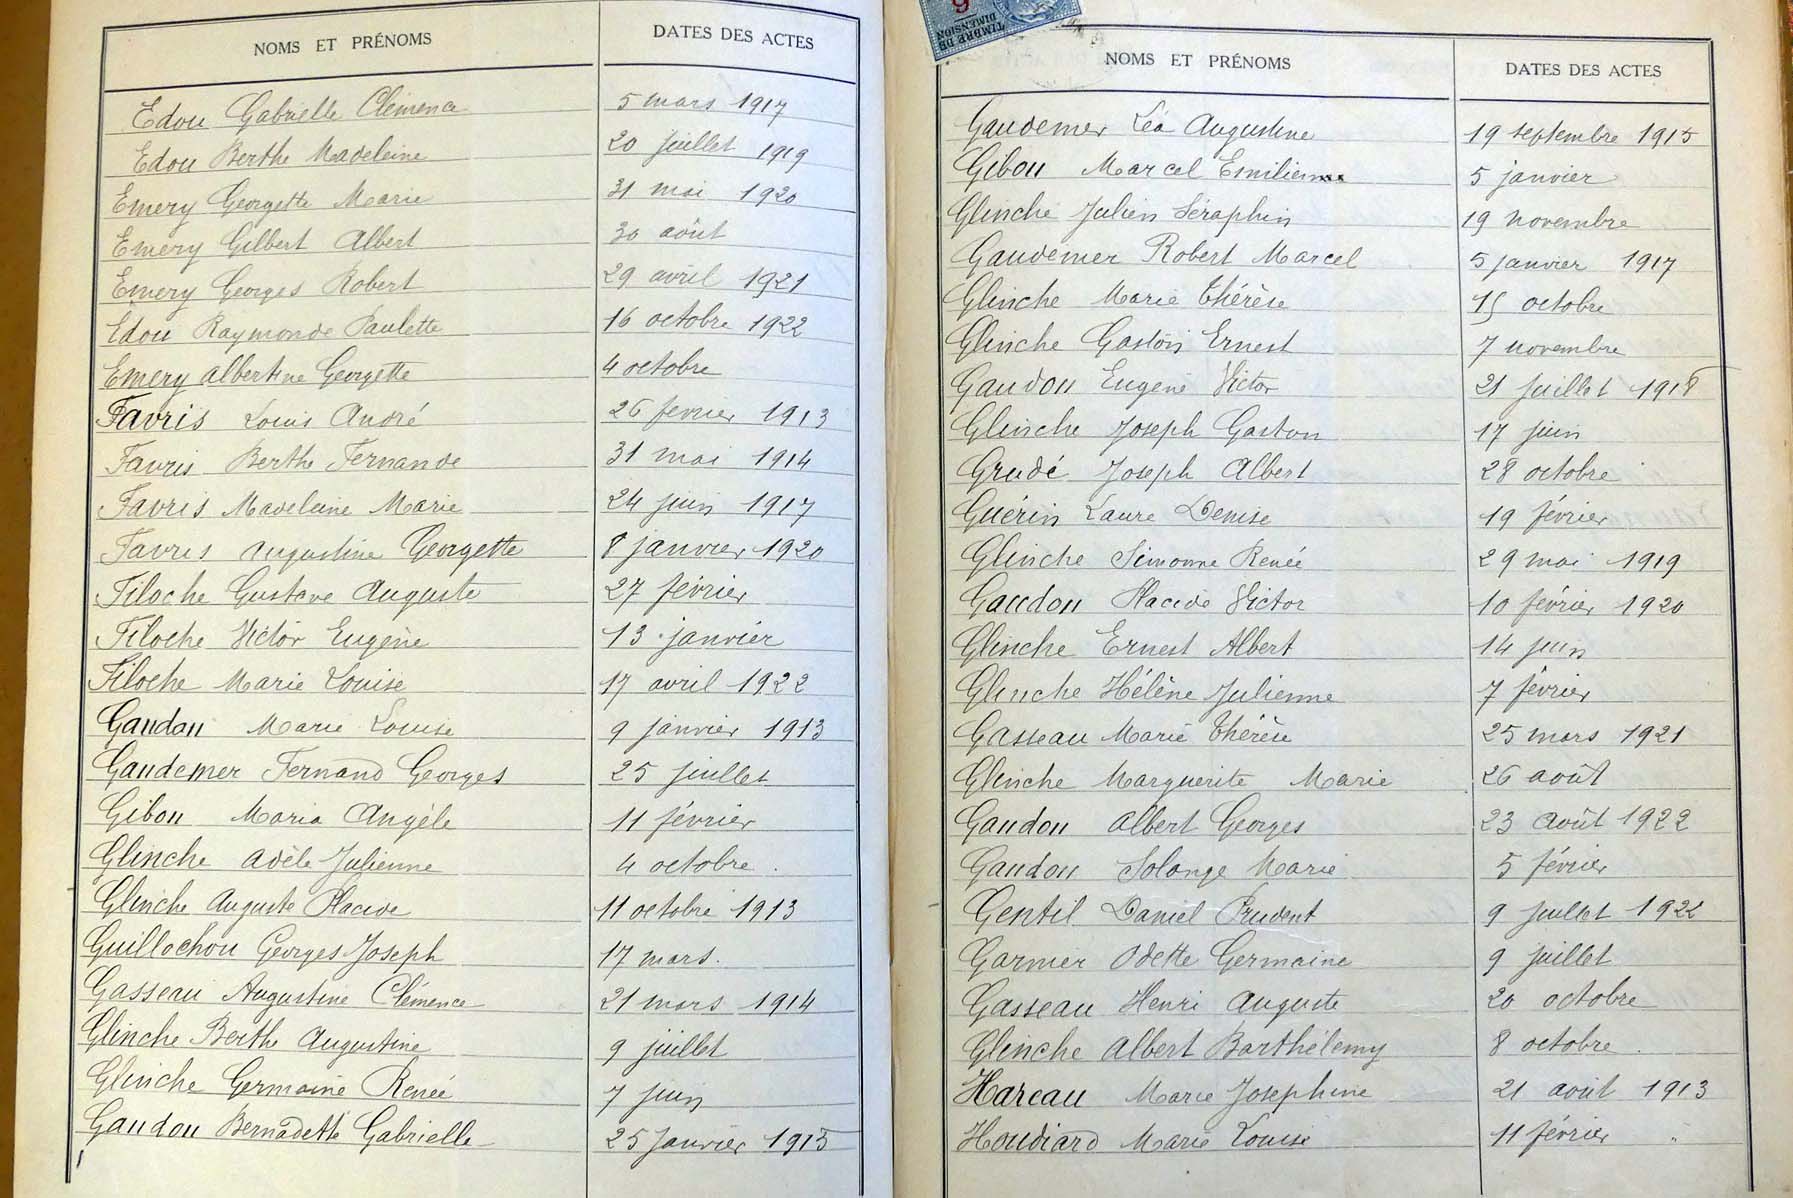 NOMS ET PRÉNOMS DATES DES ACTES
Edou Gabrielle Clémence 5 mars 1917
Edou Berthe Madeleine 20 juillet 1919
Emery Georgette Marie 31 mai 1920
Emery Gilbert Albert 30 août
Emery Georges Robert 29 avril 1921
Edou Raymonde Paulette 16 octobre 1922
Emery Albertine Georgette 4 octobre
Favris Louis André 26 fevrier 1913
Favris Berthe Fernande 31 mai 1914
Favris Madeleine Marie 24 juin 1917
Favris Augustine Georgette 8 janvier 1920
Filoche Gustave Auguste 27 février
Filoche Victor Eugène 13 janvier
Filoche Marie Louise 17 avril 1922
Gaudon Marie Louise 9 janvier 1913
Gaudemer Fernand Georges 25 juillet
Gibon Maria Angèle 11 février
Glinche Adèle Julienne 4 octobre
Glinche Auguste Placide 11 octobre 1913
Guillochon Georges Joseph 17 mars
Gasseau Augustine Clémence 21 mars 1914
Glinche Berthe Augustine 9 juillet
Glinche Germaine Renée 7 juin
Gaudon Bernadette Gabrielle 25 janvier 1915
TIMBRE DE
DIMENSION
NOMS ET PRÉNOMS DATES DES ACTES
Gaudemer Léa Augustine 19 septembre 1915
Gibon Marcel Emilien 5 janvier
Glinche Julien Séraphin 19 novembre
Gaudemer Robert Marcel 5 janvier 1917
Glinche Marie Thérèse 15 octobre
Glinche Gaston Ernest 7 novembre
Gaudon Eugène Victor 21 juillet 1918
Glinche Joseph Gaston 17 juin
Grudé Joseph Albert 28 octobre
Guérin Laure Denise 19 février
Glinche Simonne Renée 29 mai 1919
Gaudon Placide Victor 10 février 1920
Glinche Ernest Albert 14 juin
Glinche Hélène Julienne 7 février
Gasseau Marie Thérèse 25 mars 1921
Glinche Marguerite Marie 26 août
Gaudon Albert Georges 23 août 1922
Gaudon Solange Marie 5 février
Gentil Daniel Prudent 9 juillet 1922
Garnier Odette Germaine 9 juillet
Gasseau Henri Auguste 20 octobre
Glinche Albert Barthélemy 8 octobre
Hareau Marie Josephine 21 août 1913
Houdiard Marie Louise 11 février "